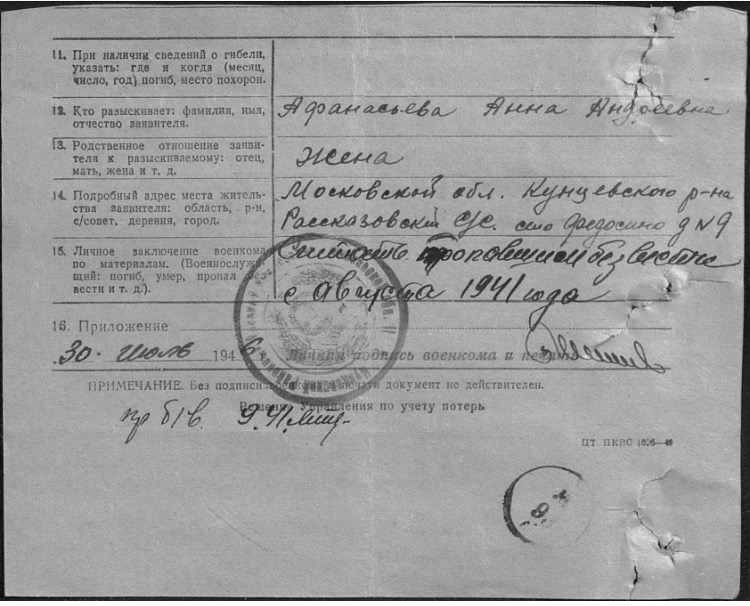 11. При наличии сведений о гибели,
указать: где и когда (месяц,
число, год) погиб, место похорон.
12. Кто разыскивает: фамилия, имя,
отчество заявителя.
Афанасьева Анна Андреевна
13. Родственное отношение заяви-
теля к разыскиваемому: отец,
мать, жена и т. д.
Жена
14. Подробный адрес места житель-
ства заявителя: область, р-н,
с/совет, деревня, город.
Московской обл. Кунцевского р-на
Рассказовский с/с. Федосино д N 9
15. Личное заключение военкома
по материалам. (Военнослужа-
щий: погиб, умер, пропал без
вести и т. д.)
Считать пропавшим без вести
с августа 1941 года
16. Приложение
30. июль 1946
Личная подпись военкома и печать
ПРИМЕЧАНИЕ. Без подписи военкома и печати документ не действителен.
Решение Управления по учету потерь
пр б/в.
ЦТ ПКВС 1626—46